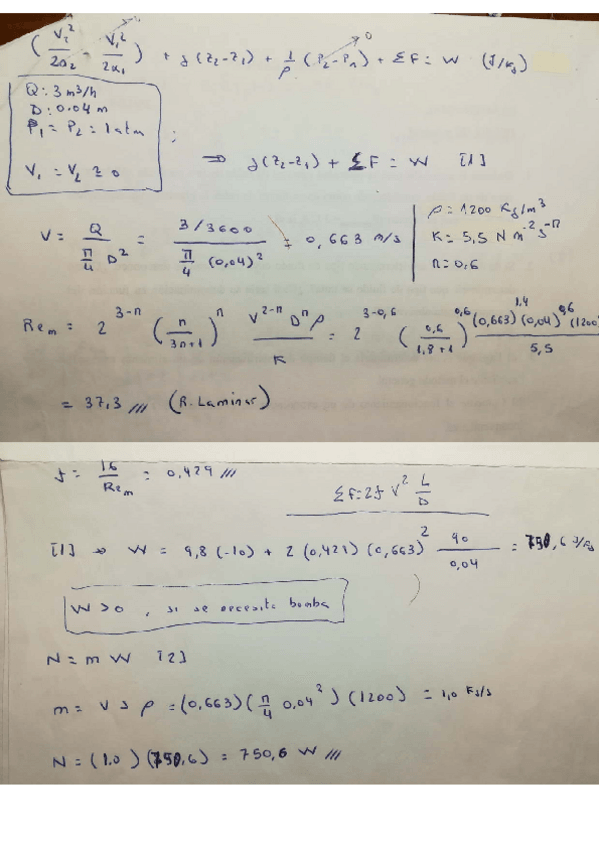 (V₂²/2α₂ - V₁²/2α₁) + g(z₂-z₁) + 1/ρ (P₂-P₁) + ΣF = W (J/kg)
0
Q: 3 m³/h
D: 0.04 m
P₁ = P₂ = 1 atm ;
V₁ = V₂ ≅ 0
⇒ g(z₂-z₁) + ΣF = W [1]
V = Q / (π/4 D²) = 3/3600 / (π/4 (0,04)²) = 0,663 m/s
ρ = 1200 Kg/m³
K = 5,5 N m⁻² s⁻ⁿ
n = 0,6
Reₘ = 2³⁻ⁿ (n/3n+1)ⁿ V²⁻ⁿ Dⁿ ρ / K = 2³⁻⁰,⁶ (0,6/1,8+1)⁰,⁶ (0,663)¹,⁴ (0,04)⁰,⁶ (1200) / 5,5
= 37,3 /// (R. Laminar)
f = 16/Reₘ = 0,429 ///
ΣF = 2f V² L/D
[1] ⇒ W = 9,8 (-10) + 2 (0,429) (0,663)² 90/0,04 = 750,6 J/Kg
W > 0 , si se necesita bomba
N = m W [2]
m = V S ρ = (0,663) (π/4 0,04²) (1200) = 1,0 Kg/s
N = (1.0) (750,6) = 750,6 W ///